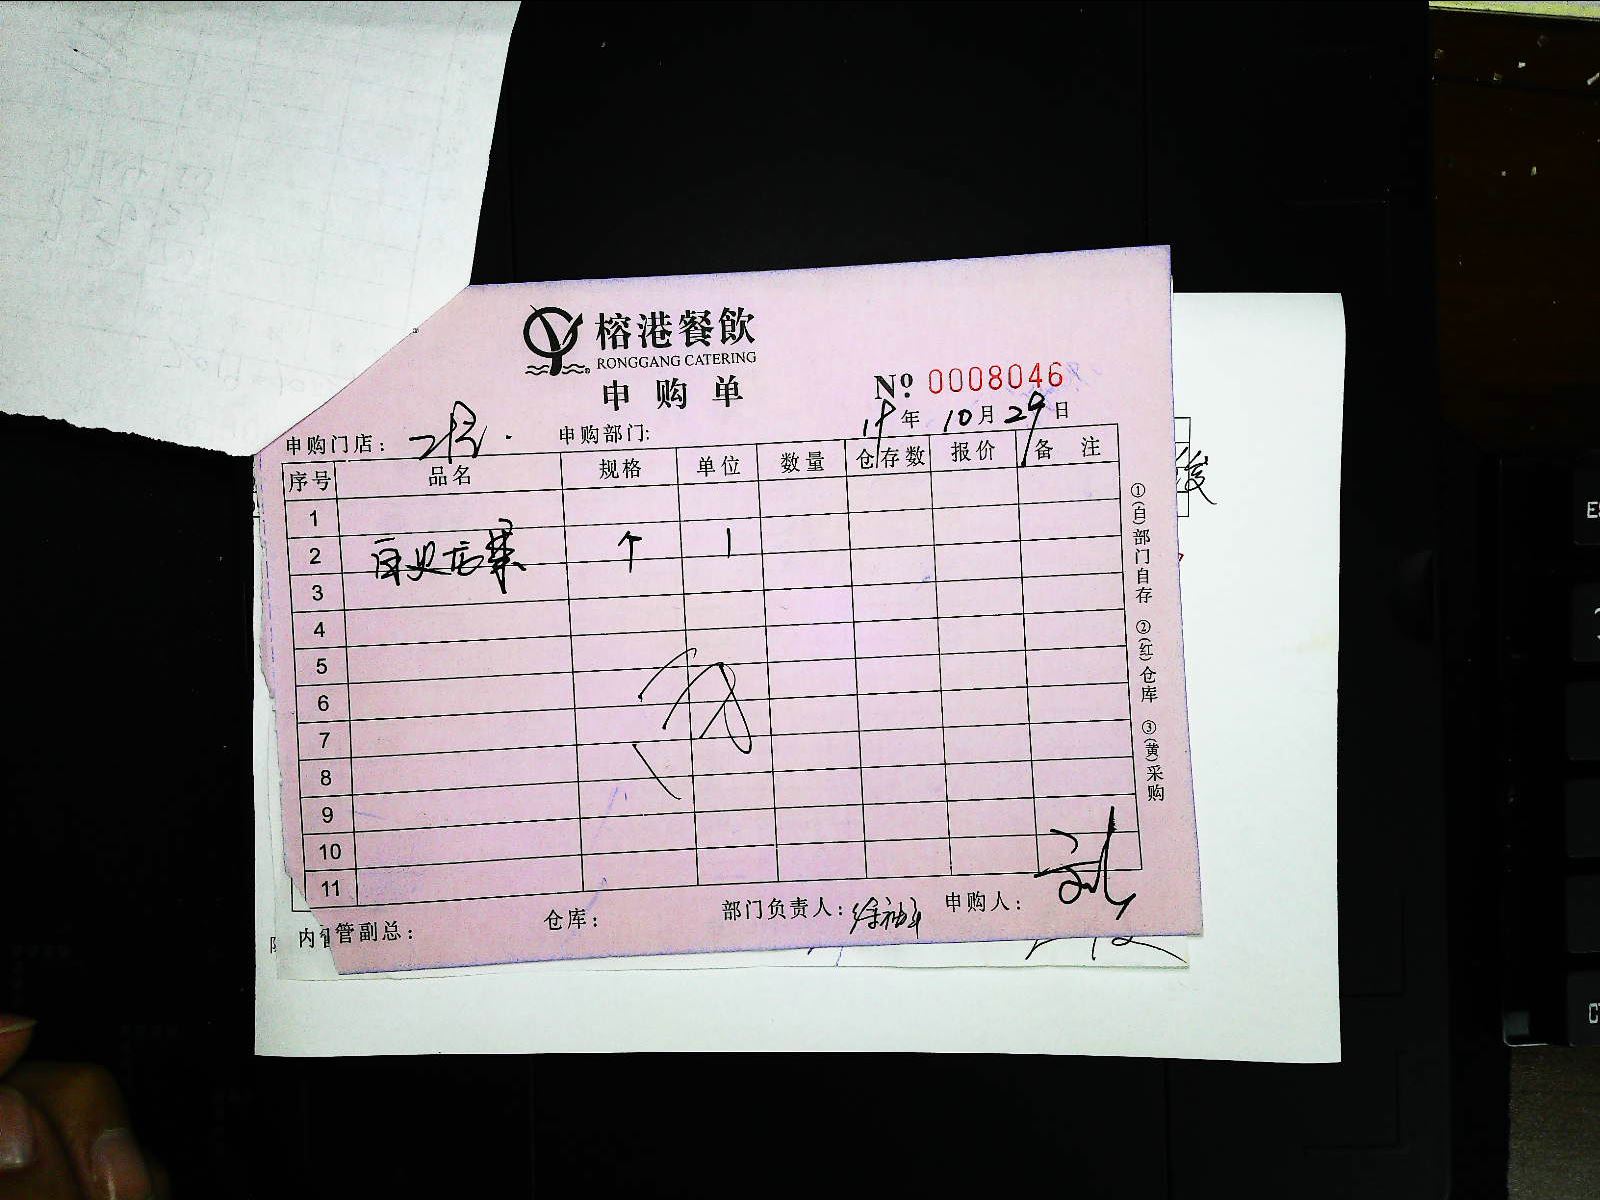 榕港餐飲
RONGGANG CATERING
申购单
№ 0008046
19年 10月 29日
申购门店： 申购部门:
序号 品名 规格 单位 数量 仓存数 报价 备注
1
2 个 1
3
4
5
6
7
8
9
10
11
①(白)部门自存 ②(红)仓库 ③(黄)采购
内管副总： 仓库： 部门负责人： 申购人：